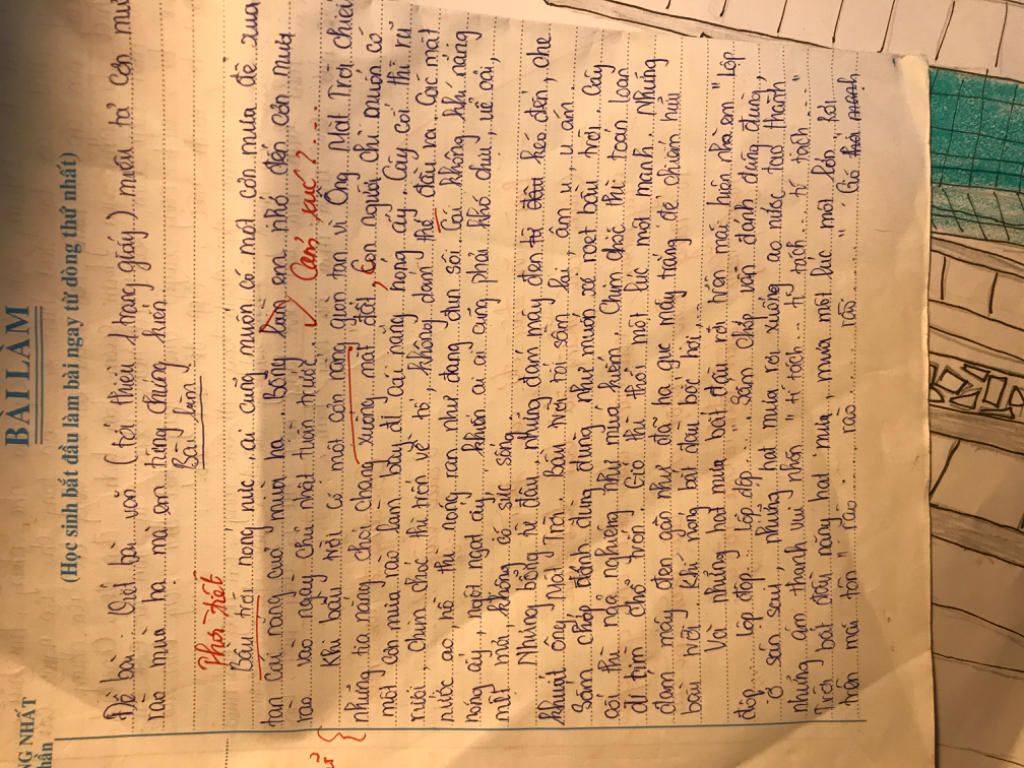 BÀI LÀM
(Học sinh bắt đầu làm bài ngay từ dòng thứ nhất)
NG NHẤT
hần
Đề bài: Viết bài văn (tối thiểu 1 trang giấy) miêu tả cơn mưa
rào mùa hạ mà em từng chứng kiến.
Bài làm
Phần kết
Bầu trời nóng nực, ai cũng muốn có một cơn mưa để xua
tan cái nóng của mùa hạ. Bỗng làm em nhớ đến cơn mưa
rào vào ngày Chủ nhật tuần trước. Cảm xúc?...
Khi bầu trời có một cơn nắng giòn tan vì Ông Mặt Trời chiếu
những tia nắng chói chang xuống mặt đất, Con người chỉ muốn có
một cơn mưa rào làm bay đi cái nắng nóng ấy. Cây cối thì rũ
rượi, chim chóc thì trốn về tổ, không dám thể đầu ra. Các mặt
nước ao, hồ thì nóng ran như đang đun sôi. Cái không khí nắng
nóng ấy, ngột ngạt ấy, khiến ai ai cũng phải khó chịu, uể oải,
mệt mỏi, không có sức sống.
Nhưng bỗng từ đâu, những đám mây đen từ kéo đến, che
khuất ông Mặt Trời. Bầu trời tối sầm lại, âm u, u ám...
Sấm chớp đánh đùng đùng như muốn xé roẹt bầu trời. Cây
cối thì ngả nghiêng như múa kiếm. Chim chóc thì toán loạn
đi tìm chỗ trốn. Gió thì thổi một lúc một mạnh. Những
đám mây đen gần như đã hạ gục mây trắng để chiếm hữu
bầu trời. Khí nóng bắt đầu bốc hơi,...
Và những hạt mưa bắt đầu rơi trên mái hiên nhà em "Lộp
độp... Lộp độp... Lộp độp..." Sấm chớp vẫn đánh đùng đùng,
ở sân sau, những hạt mưa rơi xuống ao nước tạo thành
những âm thanh vui nhộn "tí tách... tí tách... tí tách..."
Trời bắt đầu nặng hạt mưa, mưa một lúc một lớn, rơi
trên mái tôn "rào... rào... rào..." Gió